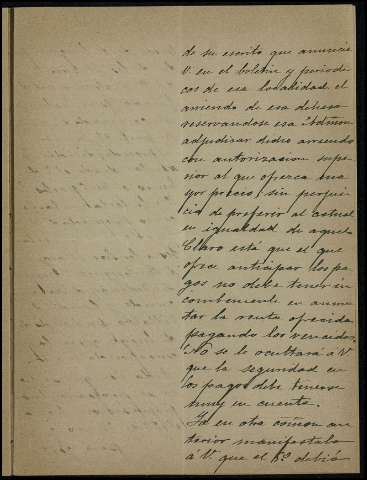 de su escrito que anuncie
V. en el boletin y periodi
cos de esa localidad el
arriendo de esa dehesa
reservandose esa Admon
adjudicar dicho arriendo
con autorizacion supe
rior al que ofrezca ma
yor precio, sin perjui
cio de preferir al actual
en igualdad de aquel.
Claro está que el que
ofrece anticipar los pa
gos no debe tener in
conveniente en aumen
tar la renta ofrecida
pagando los vencidos,
No se le ocultará á V.
que la seguridad en
los pagos debe tenerse
muy en cuenta.
Ya en otra comon an
terior manifestaba
á V. que el debió